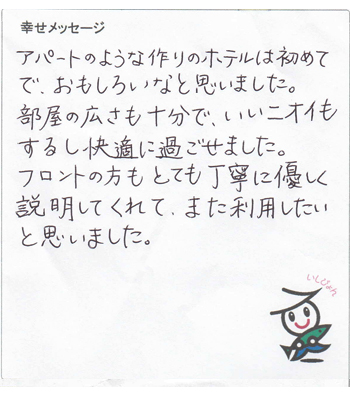 幸せメッセージ
アパートのような作りのホテルは初めて
で、おもしろいなと思いました。
部屋の広さも十分で、いいニオイも
するし快適に過ごせました。
フロントの方もとても丁寧に優しく
説明してくれて、また利用したい
と思いました。